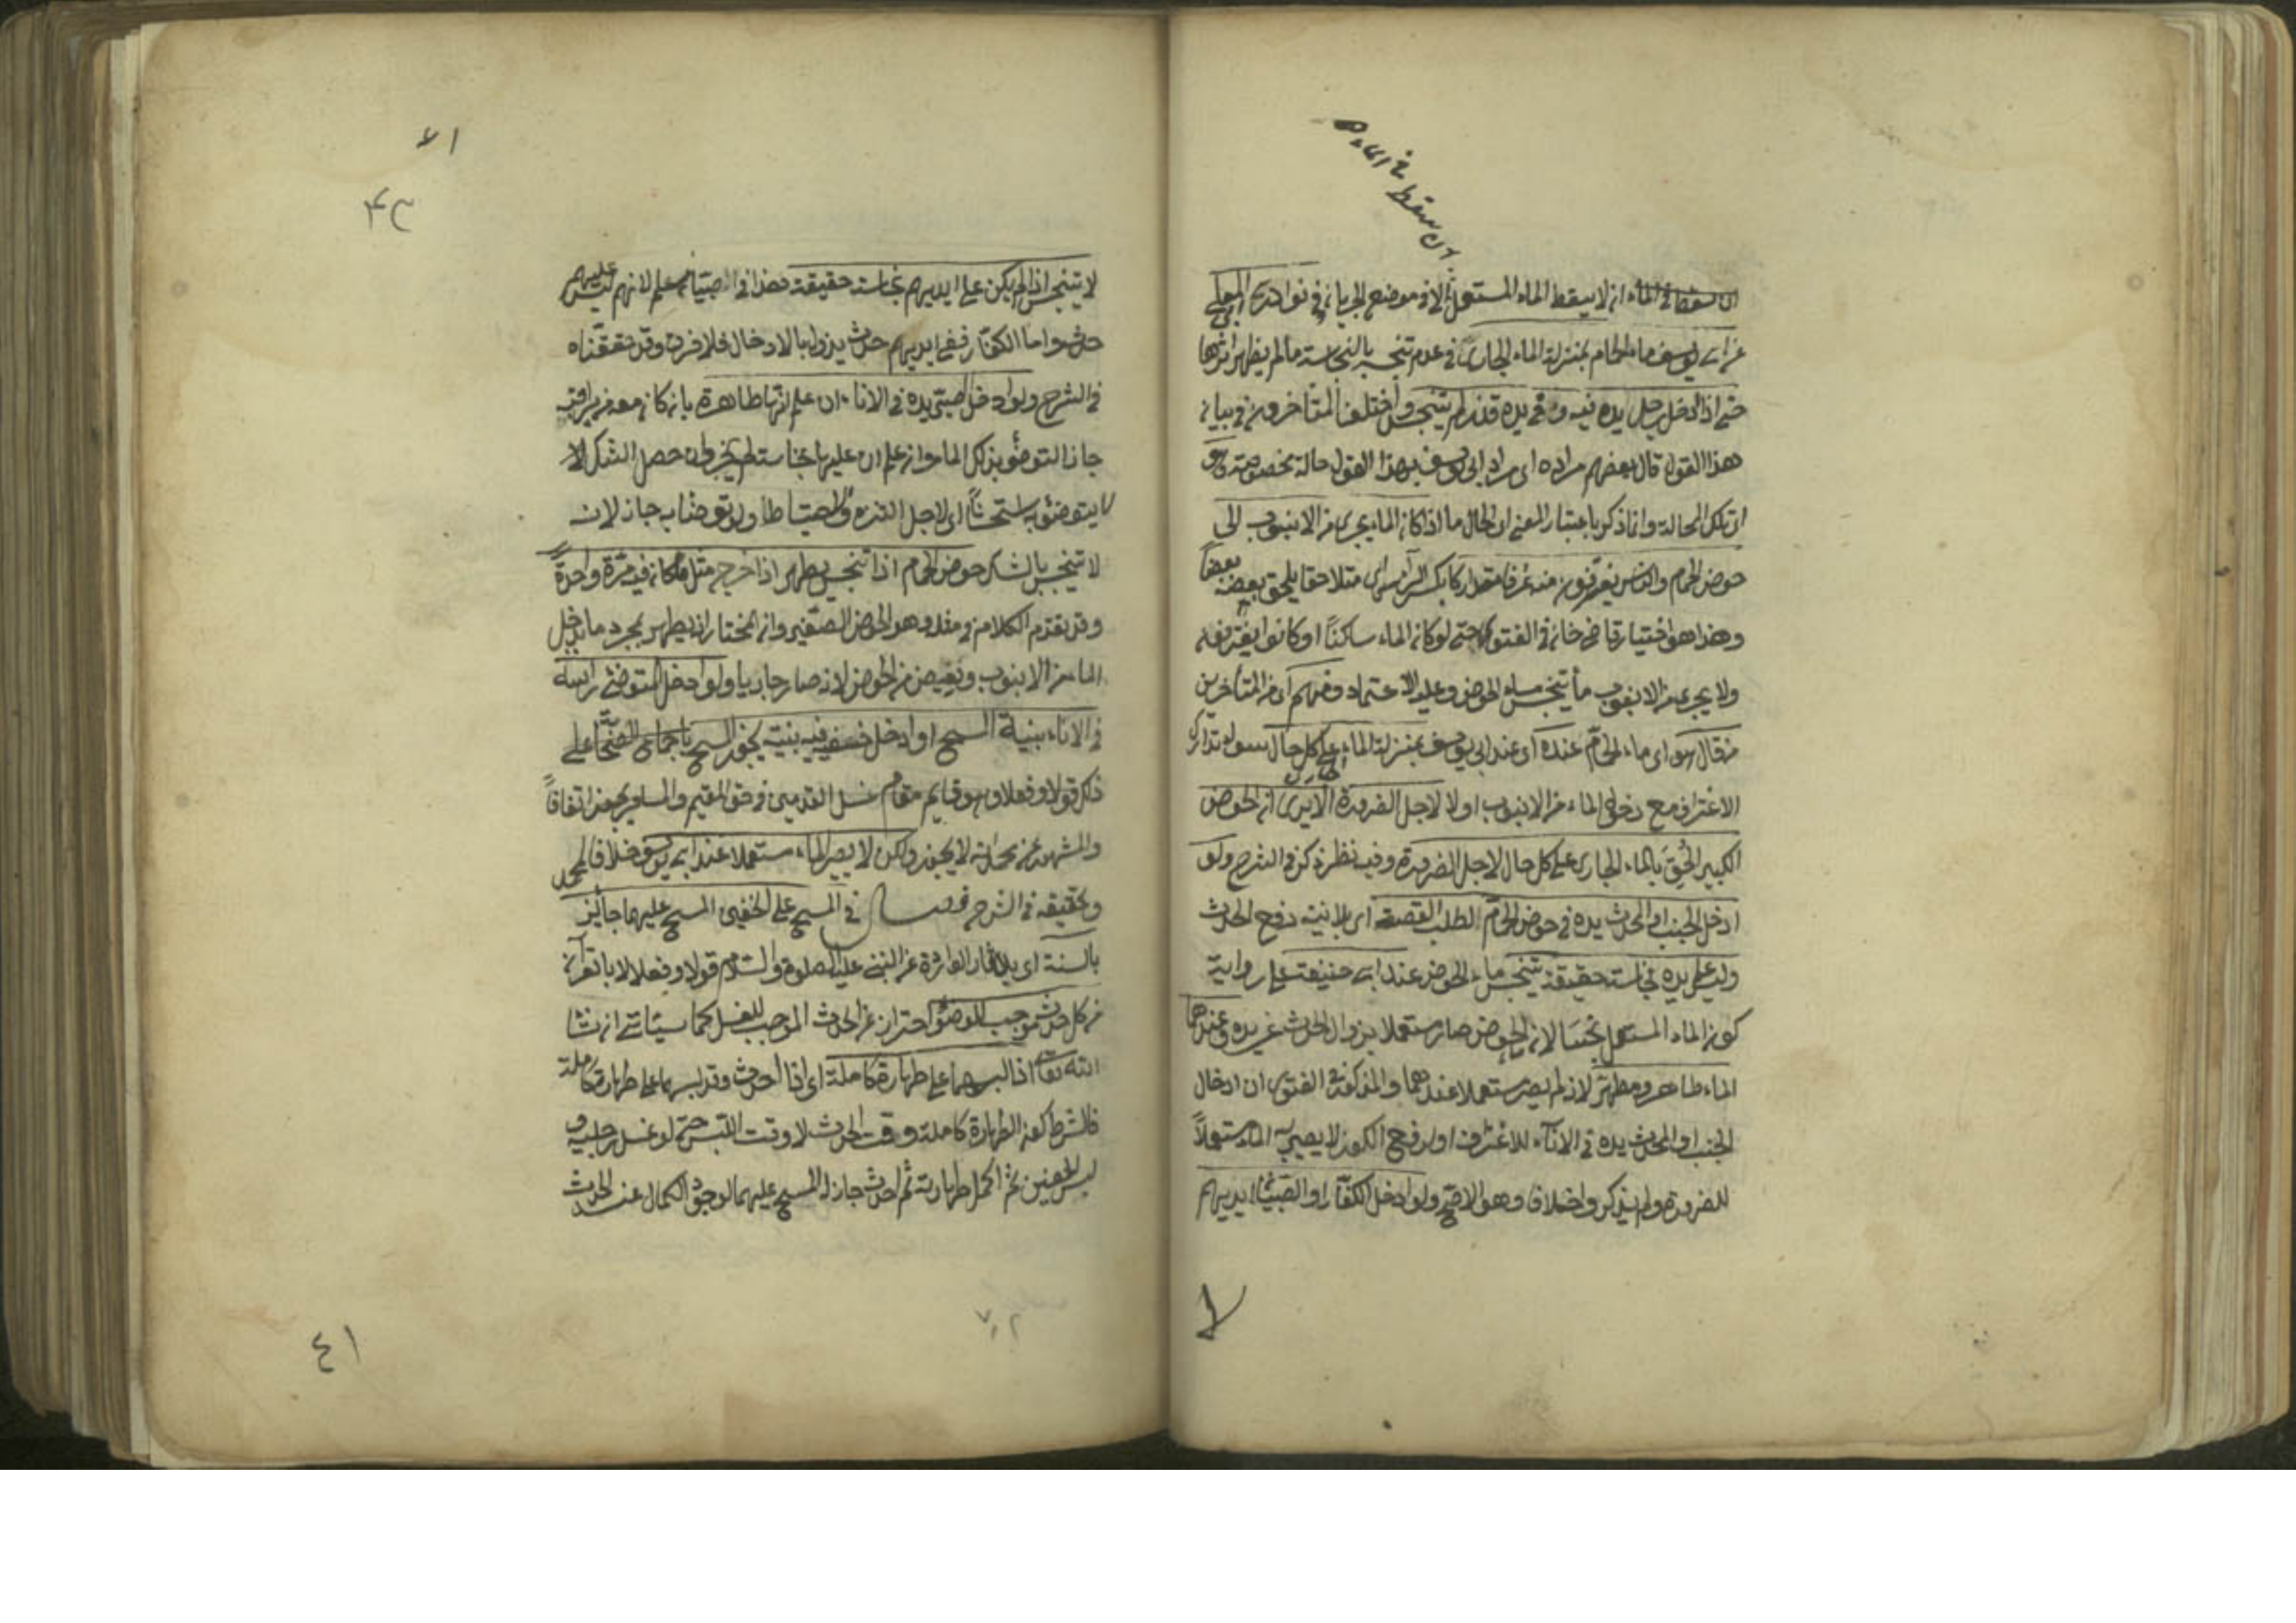 ان سقط في الماء
ان سقط في الماء انه لا يسقط الماء المستعمل الا في موضع الجريان وفي نوادر المعلى
عن ابي يوسف ماء الحمام بمنزلة الماء الجاري في عدم تنجسه بالنجاسة ما لم يظهر اثرها
حتى اذا ادخل رجل يده فيه وفي يده قذر لم يتنجس واختلف المتأخرون في بيان
هذا القول قال بعضهم مراده اى مراد ابى يوسف بهذا القول حالة مخصوصة وهو
اى تلك الحالة وانما ذكر باعتبار المعنى اى الحال ما اذا كان الماء يجرى من الانبوب الى
حوض الحمام والناس يغترفون منه غرفا متداركا بكسر الراء اى متلاحقا يلحق بعضه بعضا
وهذا هو اختيار قاضى خان فى الفتوى حتى لو كان الماء ساكنًا او كانوا يغترفونه
ولا يجرى من الانبوب ماء يتنجس ماء الحوض وعليه الاعتماد ومنهم اى من المتأخرين
من قال هو اى ماء الحمام عنده اى عند ابى يوسف بمنزلة الماء الجارى على كل حال سواء تدارك
الاغتراف مع دخول الماء من الانبوب او لا لاجل الضرورة الا يرى ان الحوض
الكبير الحق بالماء الجارى على كل حال لاجل الضرورة وفيه نظر ذكر فى الشرح ولو
ادخل الجنب او المحدث يده فى حوض الحمام لطلب القصعة اى بلا نية رفع الحدث
وليس على يده نجاسة حقيقة يتنجس ماء الحوض عند ابى حنيفة على رواية
كون الماء المستعمل نجسا لان الحوض صار مستعملا بزوال الحدث عن يده وعندهما
الماء طاهر ومطهر لانه لم يصر مستعملا عندهما والمذكور فى الفتوى ان ادخال
الجنب او المحدث يده فى الاناء للاغتراف او لرفع الكوز لا يصير الماء مستعملاً
للضرورة ولم يذكر واخلافا وهو الاصح ولو ادخل الكفار او الصبيان ايديهم
٤١
٤٢
لا يتنجس اذا لم يكن على ايديهم نجاسة حقيقة هذا فى الصبيان مسلم لانهم ليس عليهم
حدث واما الكفار ففى ايديهم حدث يزول بالادخال فلا فرق وقد حققناه
فى الشرح ولو ادخل الصبى يده فى الاناء ان علم انها طاهرة بان كان معه من يراقبه
جاز التوضؤ بذلك الماء وان علم ان عليها نجاسة لم يجز وان حصل الشك لا
يتوضؤ به استحسانا اى لاجل التنزه والاحتياط ولو توضأ به جاز لانه
لا يتنجس بالشك حوض الحمام اذا تنجس يطهر اذا خرج مثل ما كان فيه مرة واحدة
وقد تقدم الكلام فى مثله وهو الحوض الصغير وان المختار انه يطهر بمجرد ما يدخل
الماء من الانبوب ويفيض من الحوض لانه صار جاريا ولو ادخل المتوضى رأسه
فى الاناء بنية المسح او ادخل خفه فيه بنيته يجوز المسح باجماع الصحابة على
ذلك قولا وفعلا وهو قايم مقام غسل القدمين فى حق المقيم والمسافر يجوز اتفاقاً
والمشهور عن محمد انه لا يجوز ولكن لا يصير الماء مستعملا عند ابى يوسف خلافا لمحمد
وتحقيقه فى الشرح فصل فى المسح على الخفين المسح عليهما جائز
بالسنة اى بالاثار الواردة عن النبى عليه الصلوة والسلام قولا وفعلا لا بالقرآن
من كل حدث موجب للوضوء احتراز عن الحدث الموجب للغسل كما سيأتى ان شا
الله تعالى اذا لبسهما على طهارة كاملة اى اذا احدث وقد لبسهما على طهارة كاملة
فالشرط كون الطهارة كاملة وقت الحدث لا وقت اللبس حتى لو غسل رجليه و
لبس الخفين ثم اكمل طهارته ثم احدث جاز له المسح عليهما لوجود الكمال عند الحدث
٤١